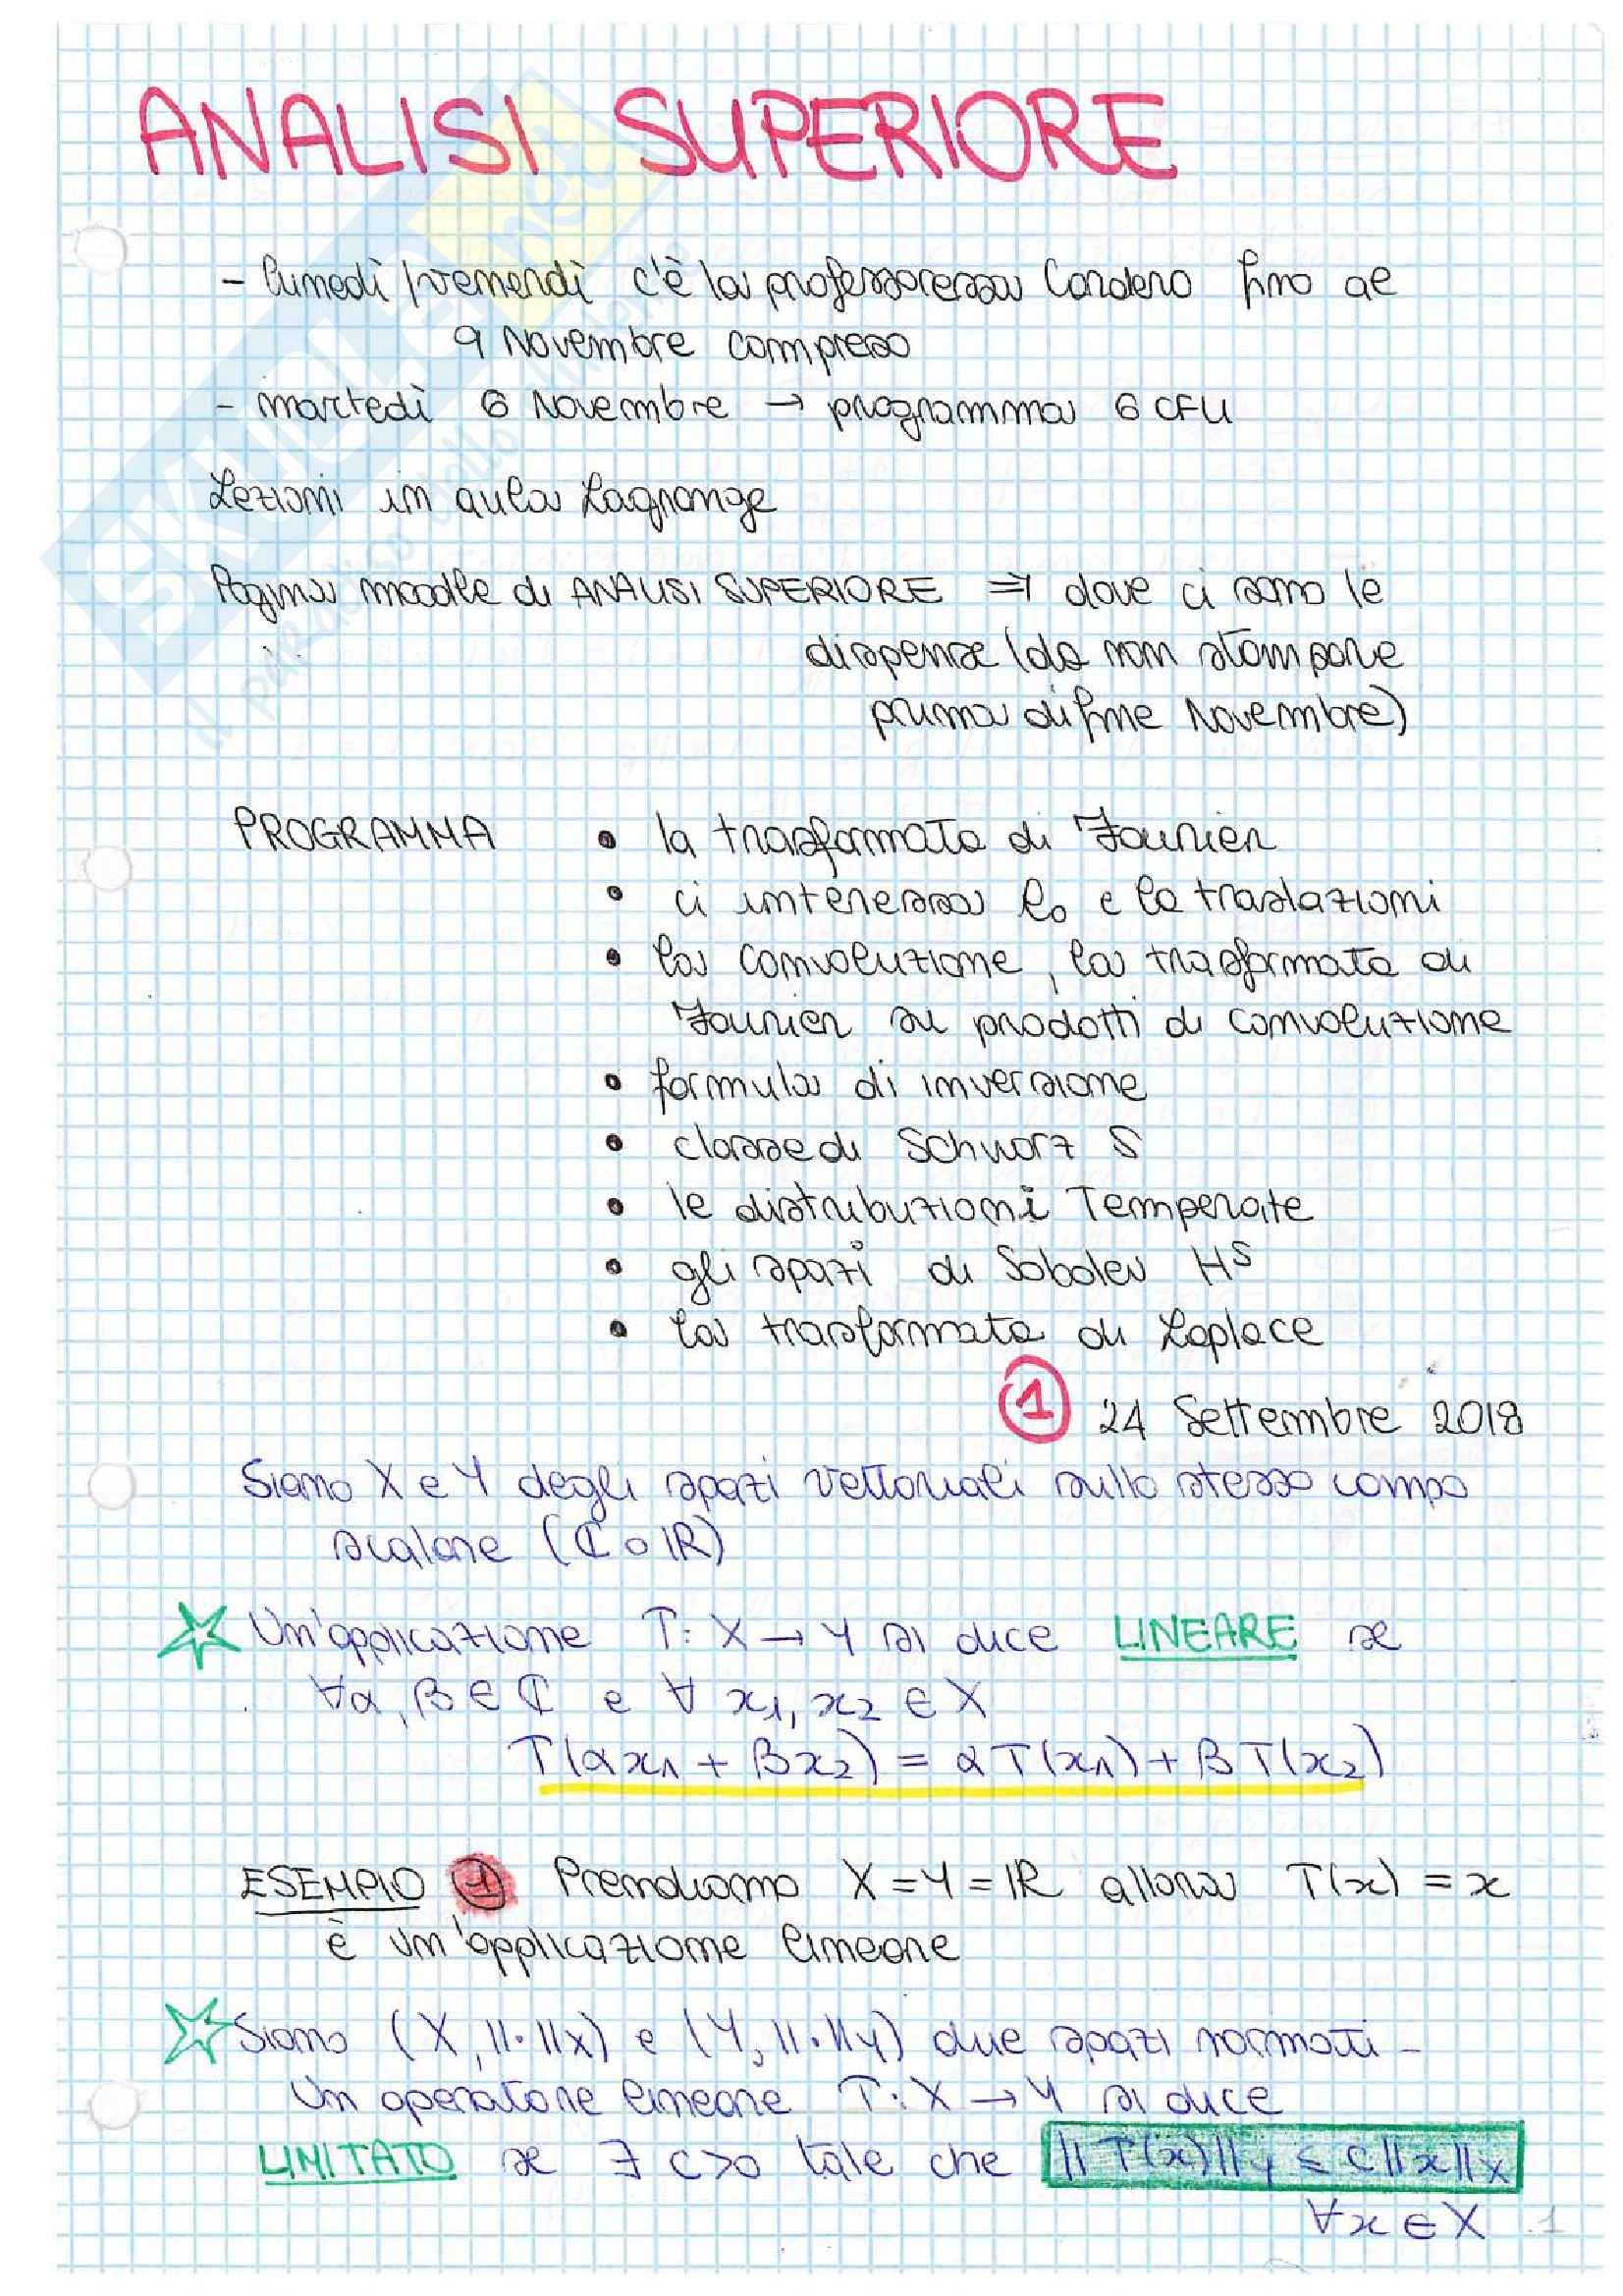 ANALISI SUPERIORE
- lunedì / venerdì c'è la professoressa Cordero fino al
9 Novembre compreso
- martedì 6 Novembre → programma 6 CFU
Lezioni in aula Lagrange
Pagina moodle di ANALISI SUPERIORE ⇒ dove ci sono le
dispense (da non stampare
prima di fine Novembre)
PROGRAMMA • la trasformata di Fourier
• ci interessa e le traslazioni
• la convoluzione, la trasformata di
Fourier su prodotti di convoluzione
• formula di inversione
• classe di Schwarz S
• le distribuzioni Temperate
• gli spazi di Sobolev Hˢ
• la trasformata di Laplace
① 24 Settembre 2018
Siano X e Y degli spazi vettoriali sullo stesso campo
scalare (ℂ o ℝ)
☆ Un'applicazione T: X → Y si dice LINEARE se
∀α, β ∈ ℂ e ∀ x₁, x₂ ∈ X
T(αx₁ + βx₂) = αT(x₁) + βT(x₂)
ESEMPIO ① Prendiamo X = Y = ℝ allora T(x) = x
è un'applicazione lineare
☆ Siano (X, ||·||x) e (Y, ||·||y) due spazi normati -
Un operatore lineare T: X → Y si dice
LIMITATO se ∃ c>0 tale che ||T(x)||y ≤ C||x||x
∀x ∈ X
1
SKUOLA.net
il paradiso dello studente